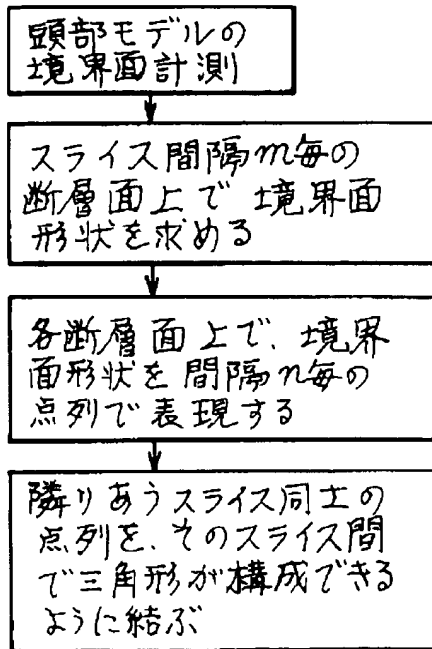 頭部モデルの
境界面計測
スライス間隔m毎の
断層面上で境界面
形状を求める
各断層面上で、境界
面形状を間隔n毎の
点列で表現する
隣りあうスライス同士の
点列を、そのスライス間
で三角形が構成できる
ように結ぶ